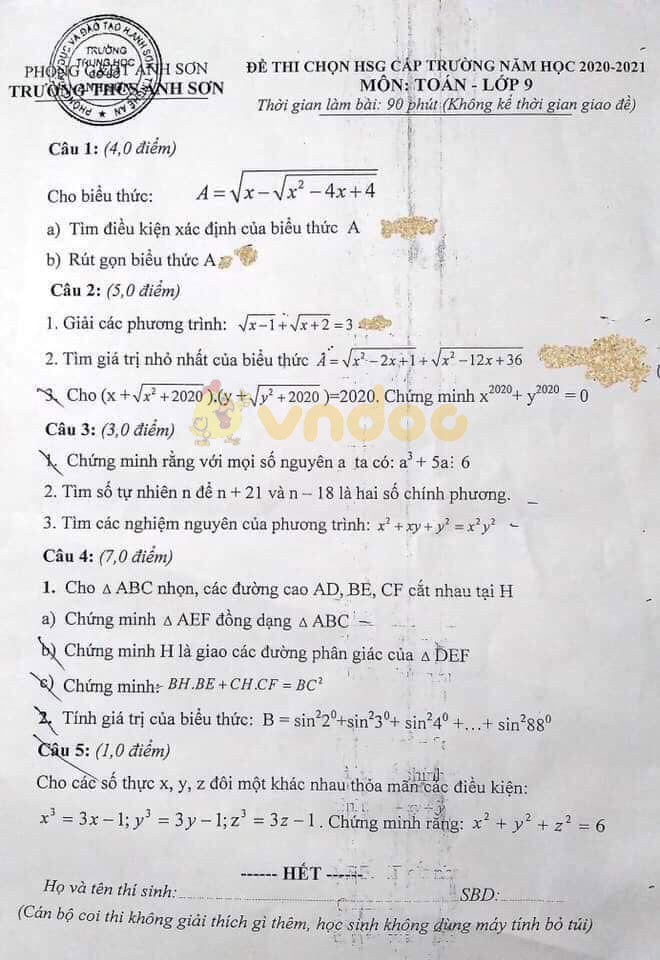 PHÒNG GD&ĐT ANH SƠN
TRƯỜNG THCS ANH SƠN
TRƯỜNG
TRUNG HỌC
CƠ SỞ
ANH SƠN
ĐỀ THI CHỌN HSG CẤP TRƯỜNG NĂM HỌC 2020-2021
MÔN: TOÁN - LỚP 9
Thời gian làm bài: 90 phút (Không kể thời gian giao đề)
Câu 1: (4,0 điểm)
Cho biểu thức: A = √(x − √(x² − 4x + 4))
a) Tìm điều kiện xác định của biểu thức A
b) Rút gọn biểu thức A
Câu 2: (5,0 điểm)
1. Giải các phương trình: √(x−1) + √(x+2) = 3
2. Tìm giá trị nhỏ nhất của biểu thức A = √(x² − 2x + 1) + √(x² − 12x + 36)
3. Cho (x + √(x² + 2020)).(y + √(y² + 2020))=2020. Chứng minh x²⁰²⁰ + y²⁰²⁰ = 0
vndoc
Câu 3: (3,0 điểm)
1. Chứng minh rằng với mọi số nguyên a ta có: a³ + 5a⋮ 6
2. Tìm số tự nhiên n để n + 21 và n – 18 là hai số chính phương.
3. Tìm các nghiệm nguyên của phương trình: x² + xy + y² = x²y²
Câu 4: (7,0 điểm)
1. Cho Δ ABC nhọn, các đường cao AD, BE, CF cắt nhau tại H
a) Chứng minh Δ AEF đồng dạng Δ ABC
b) Chứng minh H là giao các đường phân giác của Δ DEF
c) Chứng minh: BH.BE + CH.CF = BC²
2. Tính giá trị của biểu thức: B = sin²2⁰+sin²3⁰+ sin²4⁰ +…+ sin²88⁰
Câu 5: (1,0 điểm)
Cho các số thực x, y, z đôi một khác nhau thỏa mãn các điều kiện:
x³ = 3x − 1; y³ = 3y − 1; z³ = 3z − 1 . Chứng minh rằng: x² + y² + z² = 6
------ HẾT ------
Họ và tên thí sinh: SBD:
(Cán bộ coi thi không giải thích gì thêm, học sinh không dùng máy tính bỏ túi)